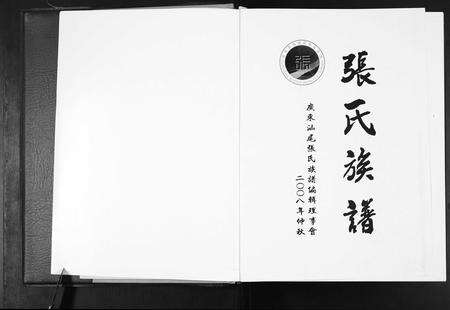 張氏族譜
廣東汕尾張氏族譜編輯理事會
二〇〇八年仲秋
張